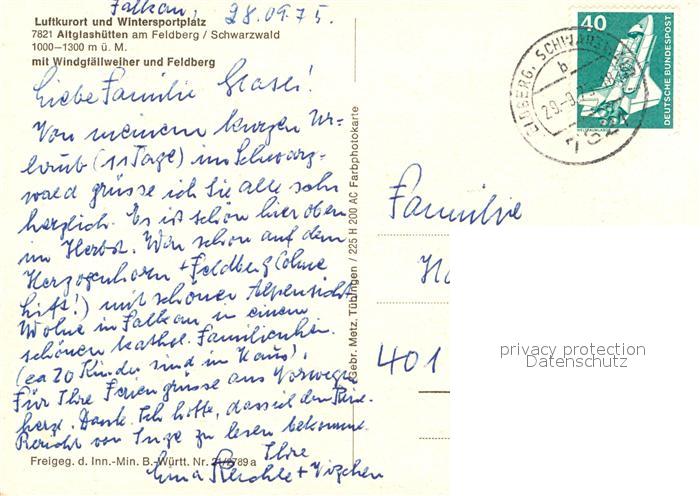 Falkau, 28.09.75.
Luftkurort und Wintersportplatz
7821 Altglashütten am Feldberg / Schwarzwald
1000–1300 m ü. M.
mit Windgfällweiher und Feldberg
Liebe Familie Glaser!
Von meinem kurzen Ur-
laub (11 Tage) im Schwarz-
wald grüsse ich Sie alle sehr
herzlich. Es ist schön hier oben
im Herbst. War schon auf dem
Herzogenhorn + Feldberg (ohne
Lift!) mit schöner Alpensicht.
Wohne in Falkau in einem
schönen kathol. Familienhein.
(ca 20 Kinder sind im Haus).
Für Ihre Feriengrüsse aus Norwegen
herzl. Dank. Ich hoffe, dass ich den
Bericht von Inge zu lesen bekomme.
Ihre
Freigeg. d. Inn.-Min. B.-Württ. Nr. 2789a
Gebr. Metz, Tübingen / 225 H 200 AC Farbphotokarte
40
DEUTSCHE BUNDESPOST
Familie
401
privacy protection
Datenschutz